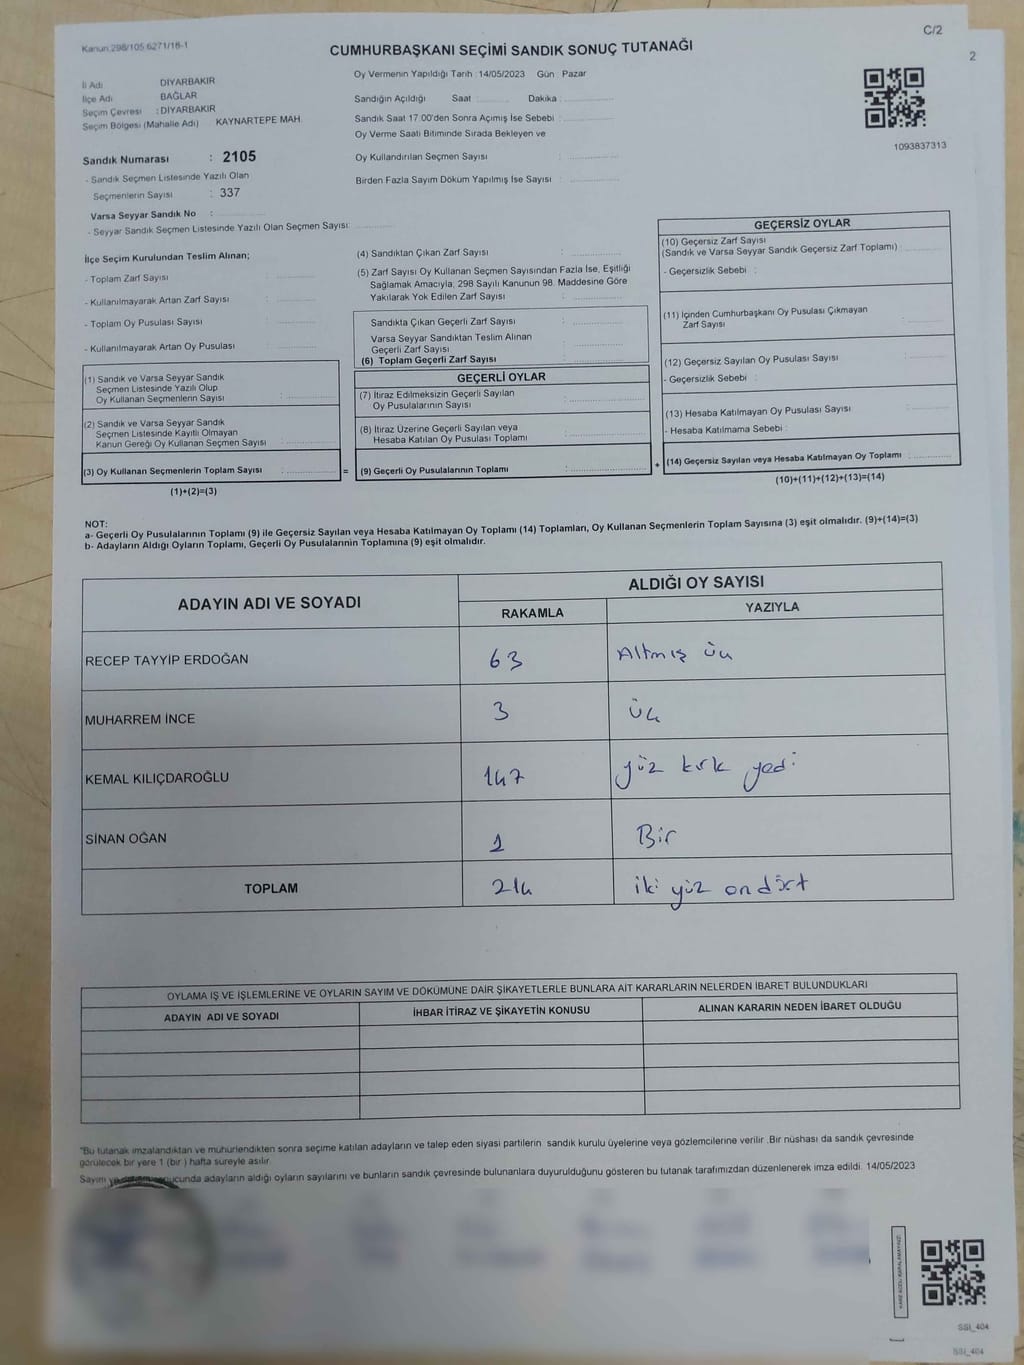 Kanun.298/105.6271/18-1
C/2
2
CUMHURBAŞKANI SEÇİMİ SANDIK SONUÇ TUTANAĞI
İl Adı DİYARBAKIR
İlçe Adı BAĞLAR
Seçim Çevresi : DİYARBAKIR
Seçim Bölgesi (Mahalle Adı) KAYNARTEPE MAH.
Sandık Numarası : 2105
- Sandık Seçmen Listesinde Yazılı Olan
Seçmenlerin Sayısı : 337
Varsa Seyyar Sandık No :
- Seyyar Sandık Seçmen Listesinde Yazılı Olan Seçmen Sayısı:
Oy Vermenin Yapıldığı Tarih : 14/05/2023 Gün : Pazar
Sandığın Açıldığı Saat : Dakika :
Sandık Saat 17:00'den Sonra Açımış İse Sebebi :
Oy Verme Saati Bitiminde Sırada Bekleyen ve
Oy Kullandırılan Seçmen Sayısı :
Birden Fazla Sayım Döküm Yapılmış İse Sayısı :
1093837313
İlçe Seçim Kurulundan Teslim Alınan;
- Toplam Zarf Sayısı :
- Kullanılmayarak Artan Zarf Sayısı :
- Toplam Oy Pusulası Sayısı :
- Kullanılmayarak Artan Oy Pusulası :
(1) Sandık ve Varsa Seyyar Sandık
Seçmen Listesinde Yazılı Olup
Oy Kullanan Seçmenlerin Sayısı :
(2) Sandık ve Varsa Seyyar Sandık
Seçmen Listesinde Kayıtlı Olmayan
Kanun Gereği Oy Kullanan Seçmen Sayısı :
(3) Oy Kullanan Seçmenlerin Toplam Sayısı :
(1)+(2)=(3)
=
(4) Sandıktan Çıkan Zarf Sayısı :
(5) Zarf Sayısı Oy Kullanan Seçmen Sayısından Fazla İse, Eşitliği
Sağlamak Amacıyla, 298 Sayılı Kanunun 98. Maddesine Göre
Yakılarak Yok Edilen Zarf Sayısı :
Sandıkta Çıkan Geçerli Zarf Sayısı :
Varsa Seyyar Sandıktan Teslim Alınan
Geçerli Zarf Sayısı :
(6) Toplam Geçerli Zarf Sayısı :
GEÇERLİ OYLAR
(7) İtiraz Edilmeksizin Geçerli Sayılan
Oy Pusulalarının Sayısı :
(8) İtiraz Üzerine Geçerli Sayılan veya
Hesaba Katılan Oy Pusulası Toplamı :
(9) Geçerli Oy Pusulalarının Toplamı :
+
GEÇERSİZ OYLAR
(10) Geçersiz Zarf Sayısı
(Sandık ve Varsa Seyyar Sandık Geçersiz Zarf Toplamı) :
- Geçersizlik Sebebi :
(11) İçinden Cumhurbaşkanı Oy Pusulası Çıkmayan
Zarf Sayısı :
(12) Geçersiz Sayılan Oy Pusulası Sayısı :
- Geçersizlik Sebebi :
(13) Hesaba Katılmayan Oy Pusulası Sayısı :
- Hesaba Katılmama Sebebi :
(14) Geçersiz Sayılan veya Hesaba Katılmayan Oy Toplamı :
(10)+(11)+(12)+(13)=(14)
NOT:
a- Geçerli Oy Pusulalarının Toplamı (9) ile Geçersiz Sayılan veya Hesaba Katılmayan Oy Toplamı (14) Toplamları, Oy Kullanan Seçmenlerin Toplam Sayısına (3) eşit olmalıdır. (9)+(14)=(3)
b- Adayların Aldığı Oyların Toplamı, Geçerli Oy Pusulalarının Toplamına (9) eşit olmalıdır.
ADAYIN ADI VE SOYADI
ALDIĞI OY SAYISI
RAKAMLA YAZIYLA
RECEP TAYYİP ERDOĞAN 63 Altmış üç
MUHARREM İNCE 3 üç
KEMAL KILIÇDAROĞLU 147 yüz kırk yedi
SİNAN OĞAN 1 Bir
TOPLAM 214 iki yüz ondört
OYLAMA İŞ VE İŞLEMLERİNE VE OYLARIN SAYIM VE DÖKÜMÜNE DAİR ŞİKAYETLERLE BUNLARA AİT KARARLARIN NELERDEN İBARET BULUNDUKLARI
ADAYIN ADI VE SOYADI İHBAR İTİRAZ VE ŞİKAYETİN KONUSU ALINAN KARARIN NEDEN İBARET OLDUĞU
"Bu tutanak imzalandıktan ve mühürlendikten sonra seçime katılan adayların ve talep eden siyasi partilerin sandık kurulu üyelerine veya gözlemcilerine verilir .Bir nüshası da sandık çevresinde
görülecek bir yere 1 (bir ) hafta süreyle asılır.
Sayım ve döküm sonucunda adayların aldığı oyların sayılarını ve bunların sandık çevresinde bulunanlara duyurulduğunu gösteren bu tutanak tarafımızdan düzenlenerek imza edildi. 14/05/2023
KARE KODU KARALAMAYINIZ!
SSI_404
SSI_404